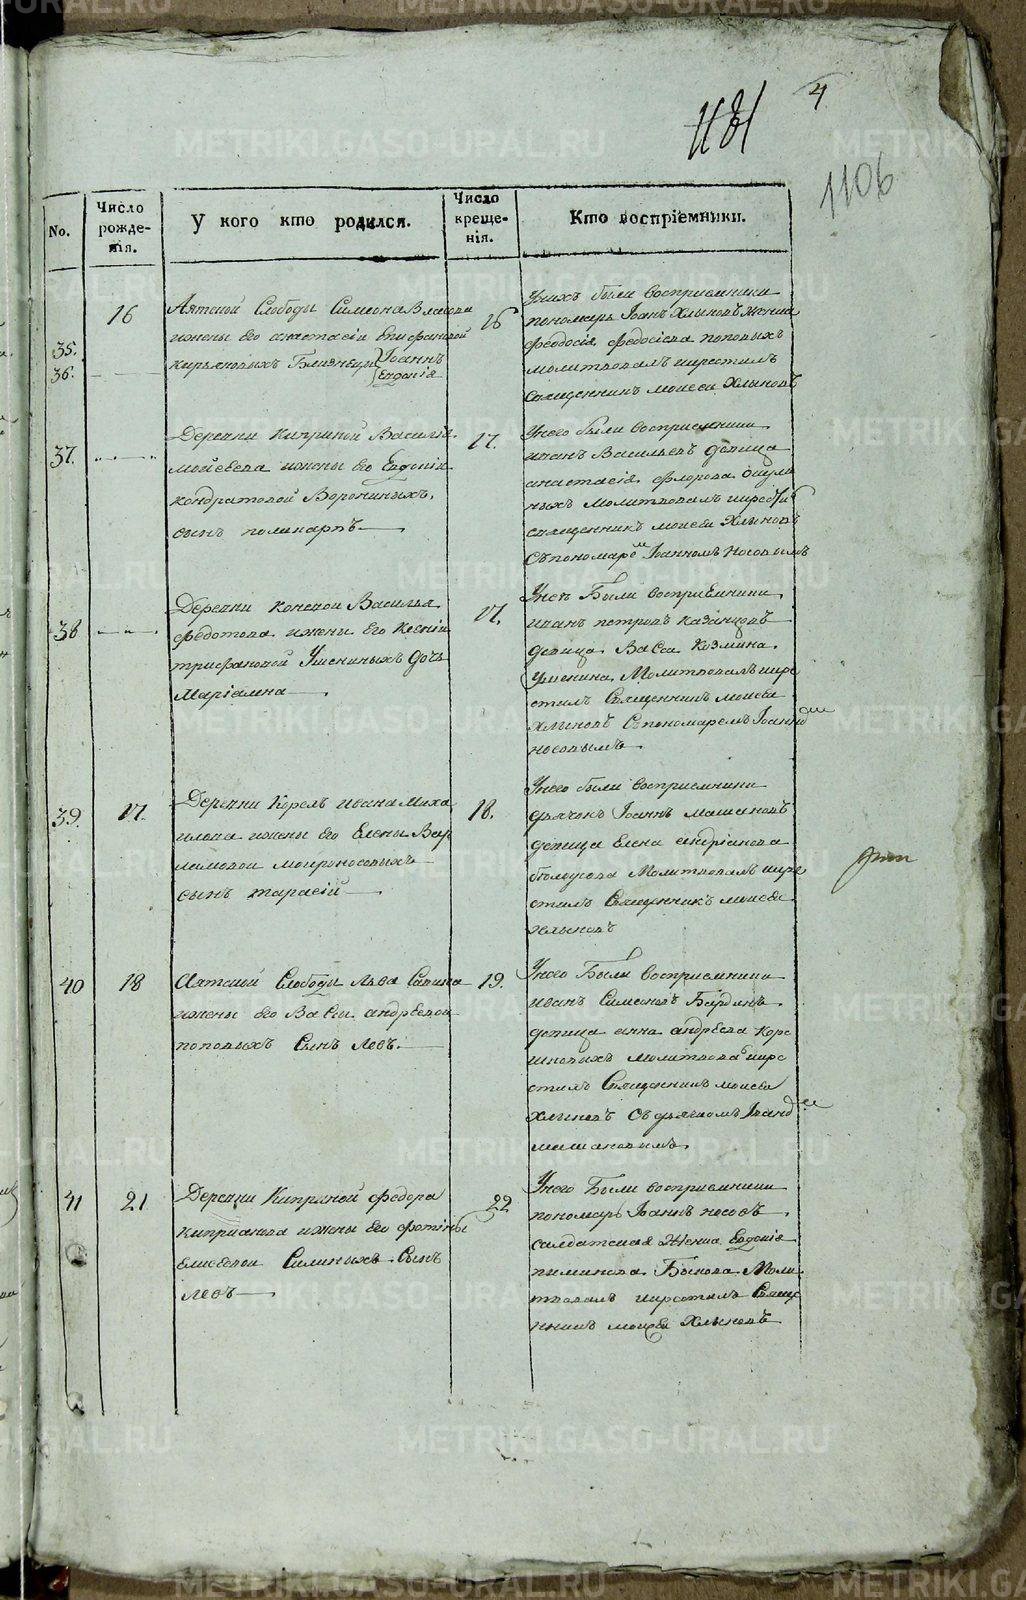 4
1106
No.
Число рожде-нія.
У кого кто родился.
Число креще-нія.
Кто воспріемники.
35.
36.
16
Аятской Слободы Симеона Власова
ижены Его анастасіи Епифановой
кирьяновыхъ Близнецы Іоаннъ
Евдокія
16
Унихъ были восприемники
пономарь Іоанъ Хлыновъ Женка
феодосія федосіева поповыхъ
молитвовалъ икрестилъ
Священникъ моисеи Хлыновъ
37.
Деревни Киприной Василія
мойсеева ижены его Евдокіи
кондратовой Ворониныхъ,
сынъ поликарпъ
17.
Унего были восприемники
иванъ Васильевъ девица
анастасія флорова
ныхъ молитвовалъ икрестилъ
священникъ моисеи Хлыновъ
Съпономаремъ Іоанномъ Носовымъ
38
Деревни конской Василья
федотова ижены Его Ксеніи
трифановой Ушениныхъ Дочь
Маріамна
17.
Унея Были восприемники
иванъ петровъ казанцовъ
девица Васса Козмина
Ушенина Молитвовалъ икре
стилъ Священникъ моисеи
Хлыновъ Съпономаремъ Іоанномъ
носовымъ.
39.
17.
Деревни Корелъ ивана Миха
илова ижены Его Елены Вар
ламовой мокроносовыхъ
сынъ тарасій
18.
Унего были восприемники
дьячокъ Іоаннъ
девица Елена андріанова
белоусова Молитвовалъ икре
стилъ Священникъ моисеи
хлыновъ
40
18
Аятской Слободы Льва Савина
ижены его Вассы андреевой
поповыхъ Сынъ Левъ.
19.
Унего Были восприемники
иванъ Симеоновъ
девица анна андреева Коре
шковыхъ молитвовалъ икре
стилъ Священникъ моисеи
Хлыновъ Съ дьячкомъ Іоанномъ
41
21
Деревни Киприной федора
киприанова ижены Его фотініи
Елисеевой Силиныхъ Сынъ
Левъ
22
Унего Были восприемники
пономарь Іоаннъ носовъ,
салдатская Женка Евдокія
пиминова Быкова Моли
твовалъ икрестилъ Свяще
нникъ моисеи Хлыновъ
METRIKI.GASO-URAL.RU